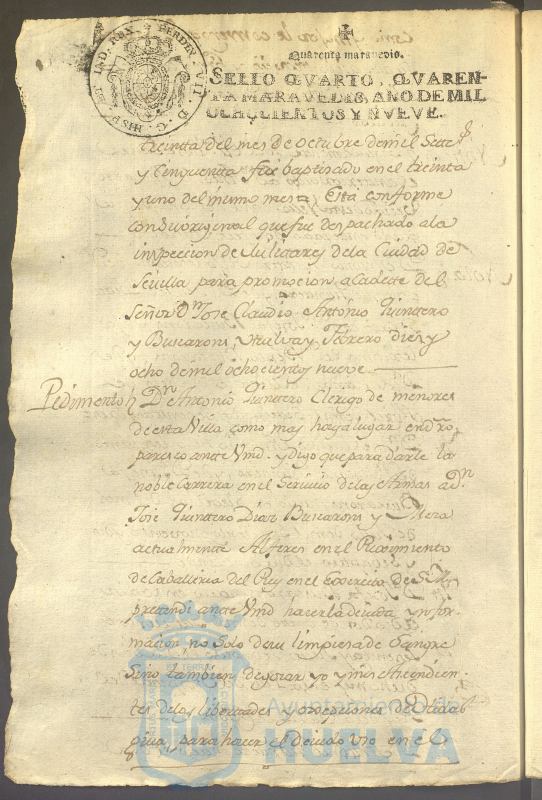 FERDIN. VII. D. G. HISP. ET IND. REX
Quarenta maravedis.
SELLO QVARTO, QVAREN-
TA MARAVEDIS, AÑO DE MIL
OCHOCIENTOS Y NVEVE.
treintta del mes de octubre de mil Sete.s
y Cinquenta fue baptisado en el treinta
y uno del mismo mes Esta conforme
con su original que fue despachado a la
inspeccion de Militares de la Ciudad de
Sevilla para promocion a Cadete del
Señor Dn Jose Claudio Antonio Quintero
y Buscaroni, Huelva y Febrero diez y
ocho de mil ochocientos nueve
Pedimento Dn Antonio Quintero Clerigo de menores
de esta Villa como mas haya lugar en dro.
paresco ante Vmd. y digo que para darle la
noble Carrera en el Servicio de las Armas a Dn
Jose Quintero Diaz Buscaroni y Mora
actualmente Alferes en el Reximiento
de Caballeria del Rey en el Exercito de S.M.
pretendi ante Vmd hacer la devida ynfor-
macion no Solo de su limpiesa de Sangre
Sino tambien de gosar yo y mis Ascendien-
tes de las libertades y exepciones de
para hacer el devido Uso en el
Ayuntamiento de
HUELVA